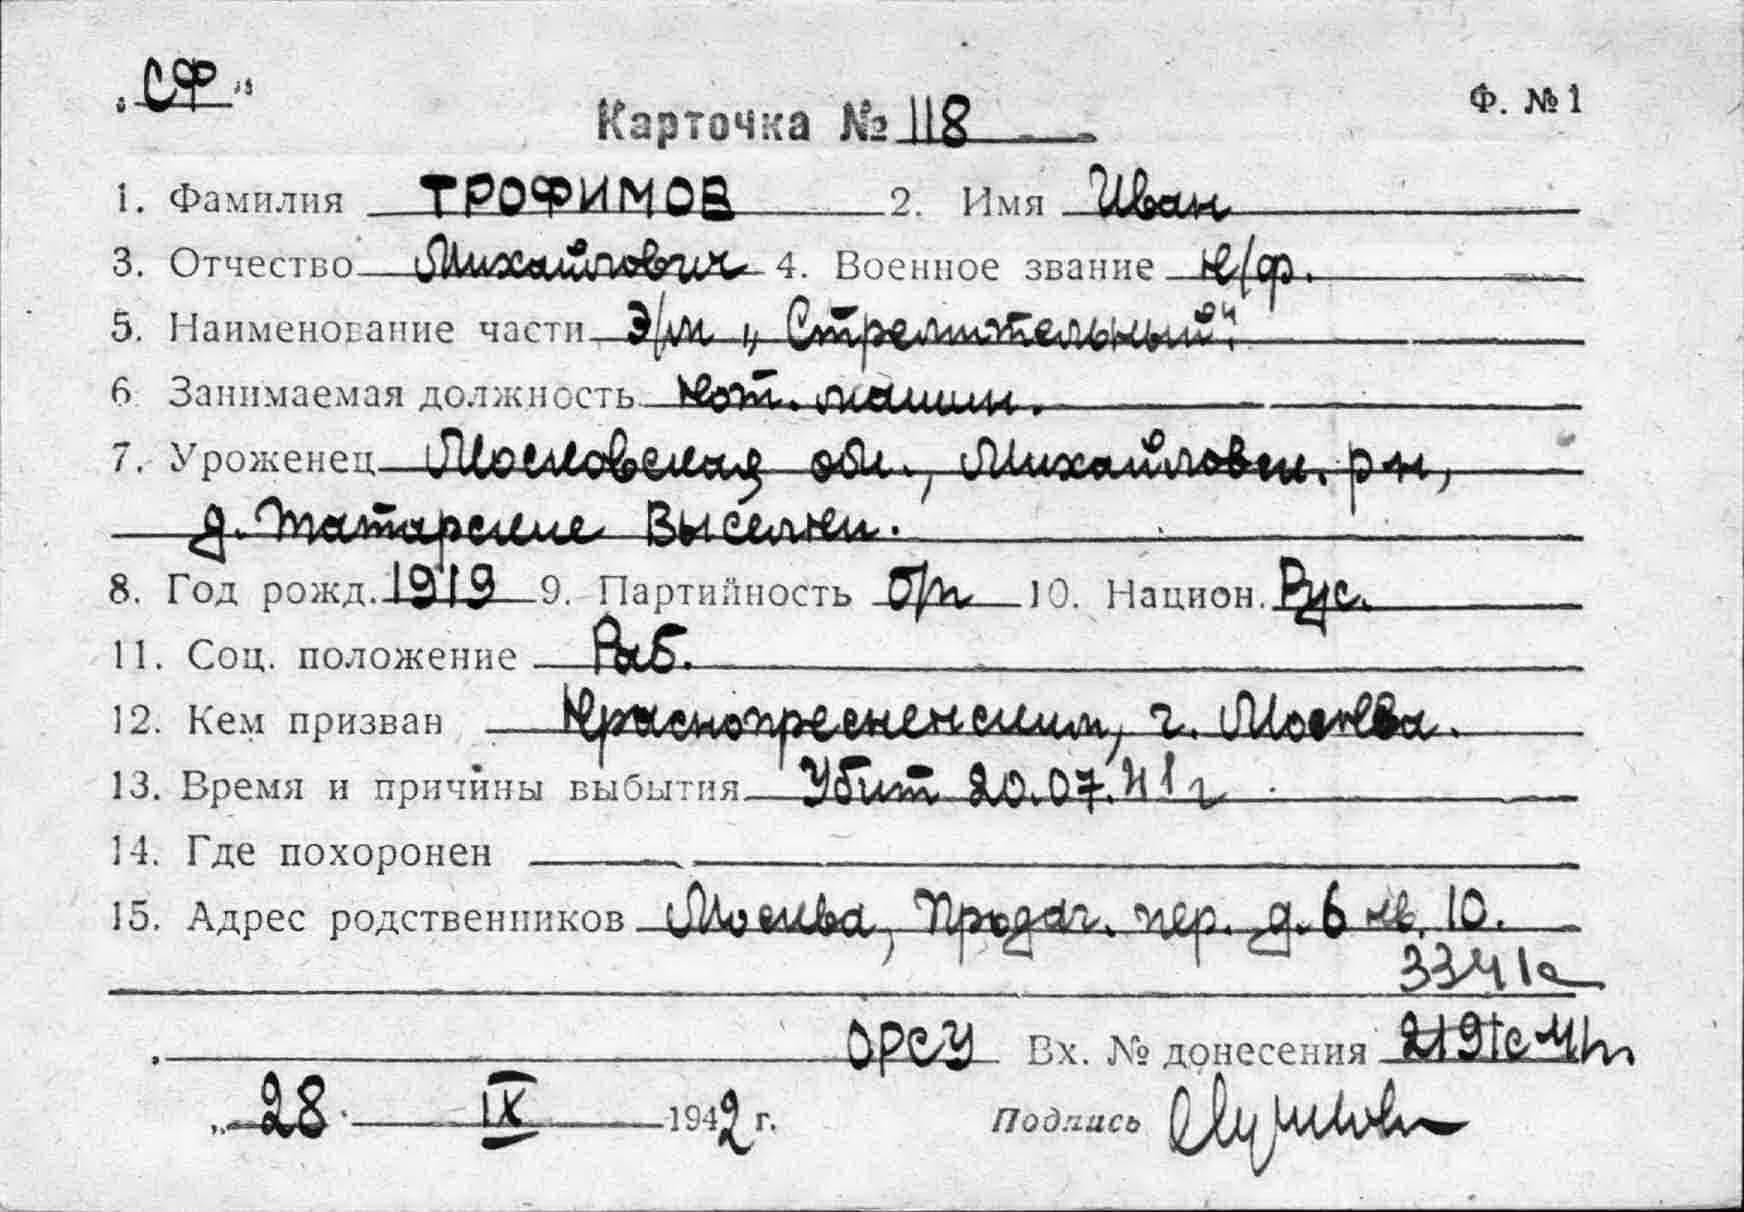 „СФ"
Ф. №1
Карточка № 118
1. Фамилия ТРОФИМОВ 2. Имя Иван
3. Отчество Михайлович 4. Военное звание к/ф.
5. Наименование части Э/м „Стремительный".
6 Занимаемая должность кот. машин.
7. Уроженец Московская обл., Михайловск. р-н,
д. Татарские Выселки.
8. Год рожд. 1919 9. Партийность б/п 10. Национ. Рус.
11. Соц. положение Раб.
12. Кем призван Краснопресненским, г. Москва.
13. Время и причины выбытия Убит 20.07.41г
14. Где похоронен
15. Адрес родственников Москва, пер. д. 6 кв. 10.
ОРСУ Вх. № донесения
„28" IX 1942 г. Подпись